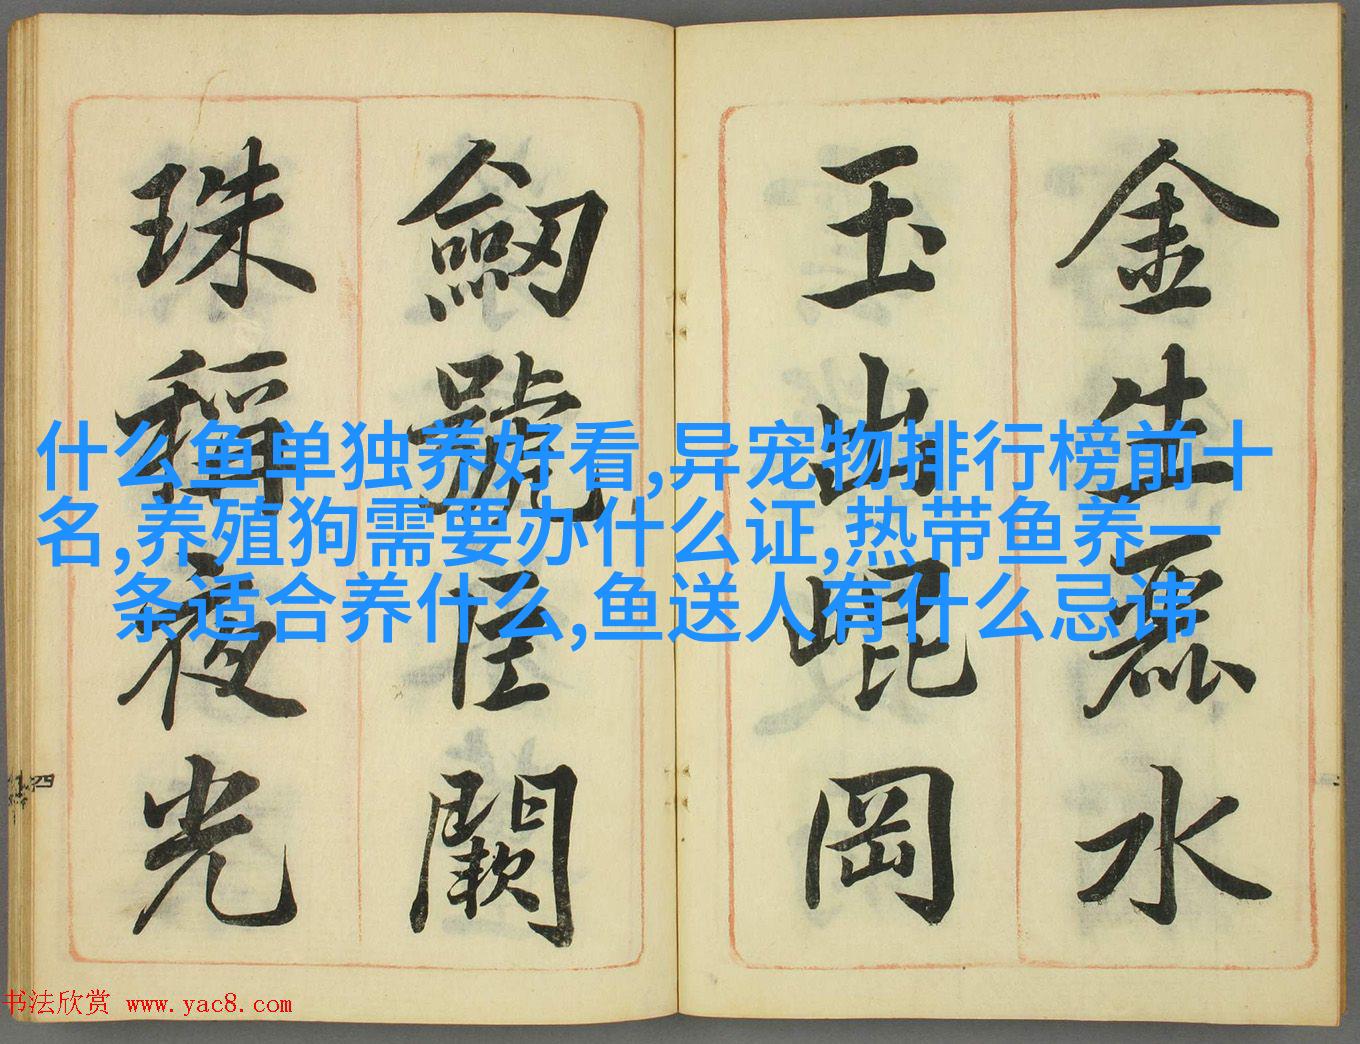 金生麗水
玉出崐岡
劒號巨闕
珠稱夜光
什么鱼单独养好看,异宠物排行榜前十
名,养殖狗需要办什么证,热带鱼养一
条适合养什么,鱼送人有什么忌讳
书法欣赏 www.yac8.com